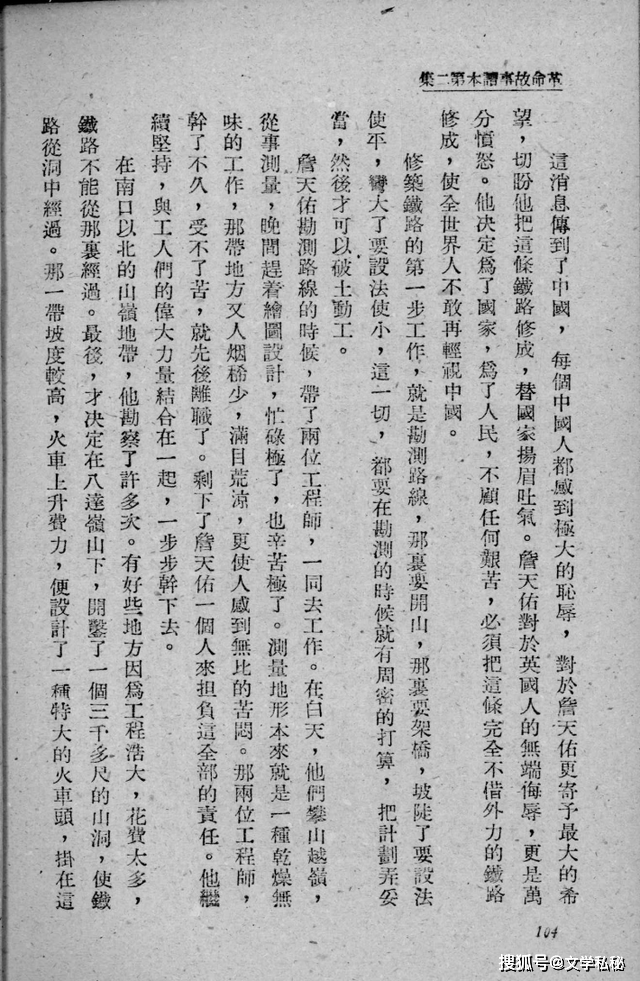 革命故事讀本第二集
這消息傳到了中國，每個中國人都感到極大的恥辱，對於詹天佑更寄予最大的希
望，切盼他把這條鐵路修成，替國家揚眉吐氣。詹天佑對於英國人的無端侮辱，更是萬
分憤怒。他決定爲了國家，爲了人民，不顧任何艱苦，必須把這條完全不借外力的鐵路
修成，使全世界人不敢再輕視中國。
修築鐵路的第一步工作，就是勘測路線，那裏要開山，那裏要架橋，坡陡了要設法
使平，彎大了要設法使小，這一切，都要在勘測的時候就有周密的打算，把計劃弄妥
當，然後才可以破土動工。
詹天佑勘測路線的時候，帶了兩位工程師，一同去工作。在白天，他們攀山越嶺，
從事測量，晚間趕着繪圖設計，忙碌極了，也辛苦極了。測量地形本來就是一種乾燥無
味的工作，那帶地方又人烟稀少，滿目荒凉，更使人感到無比的苦悶。那兩位工程師，
幹了不久，受不了苦，就先後離職了。剩下了詹天佑一個人來担負這全部的責任。他繼
續堅持，與工人們的偉大力量結合在一起，一步步幹下去。
在南口以北的山嶺地帶，他勘察了許多次。有好些地方因爲工程浩大，花費太多，
鐵路不能從那裏經過。最後，才決定在八達嶺山下，開鑿了一個三千多尺的山洞，使鐵
路從洞中經過。那一帶坡度較高，火車上升費力，便設計了一種特大的火車頭，掛在這
104
搜狐号@文学私秘